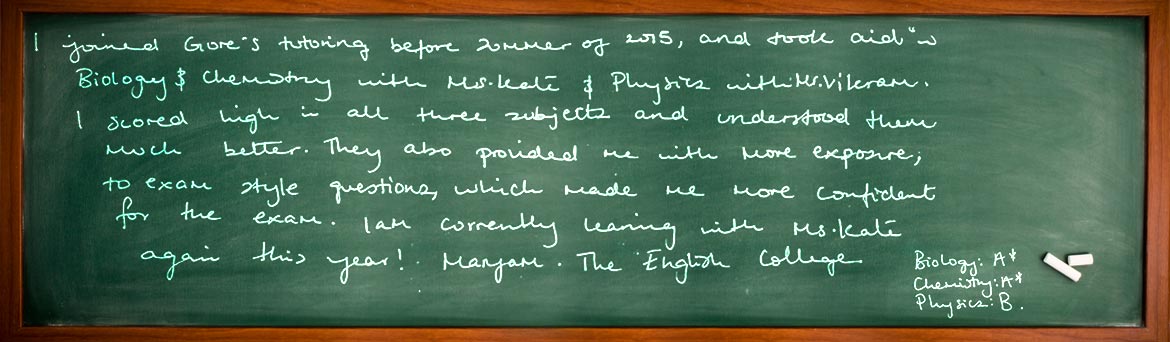 I joined Gore's tutoring before summer of 2015, and took aid in
Biology & Chemistry with Ms.Kate & Physics with Mr.Vikram.
I scored high in all three subjects and understood them
much better. They also provided me with more exposure;
to exam style questions, which made me more confident
for the exam. I am currently learning with Ms.Kate
again this year! Maryam. The English College
Biology: A*
Chemistry: A*
Physics: B.